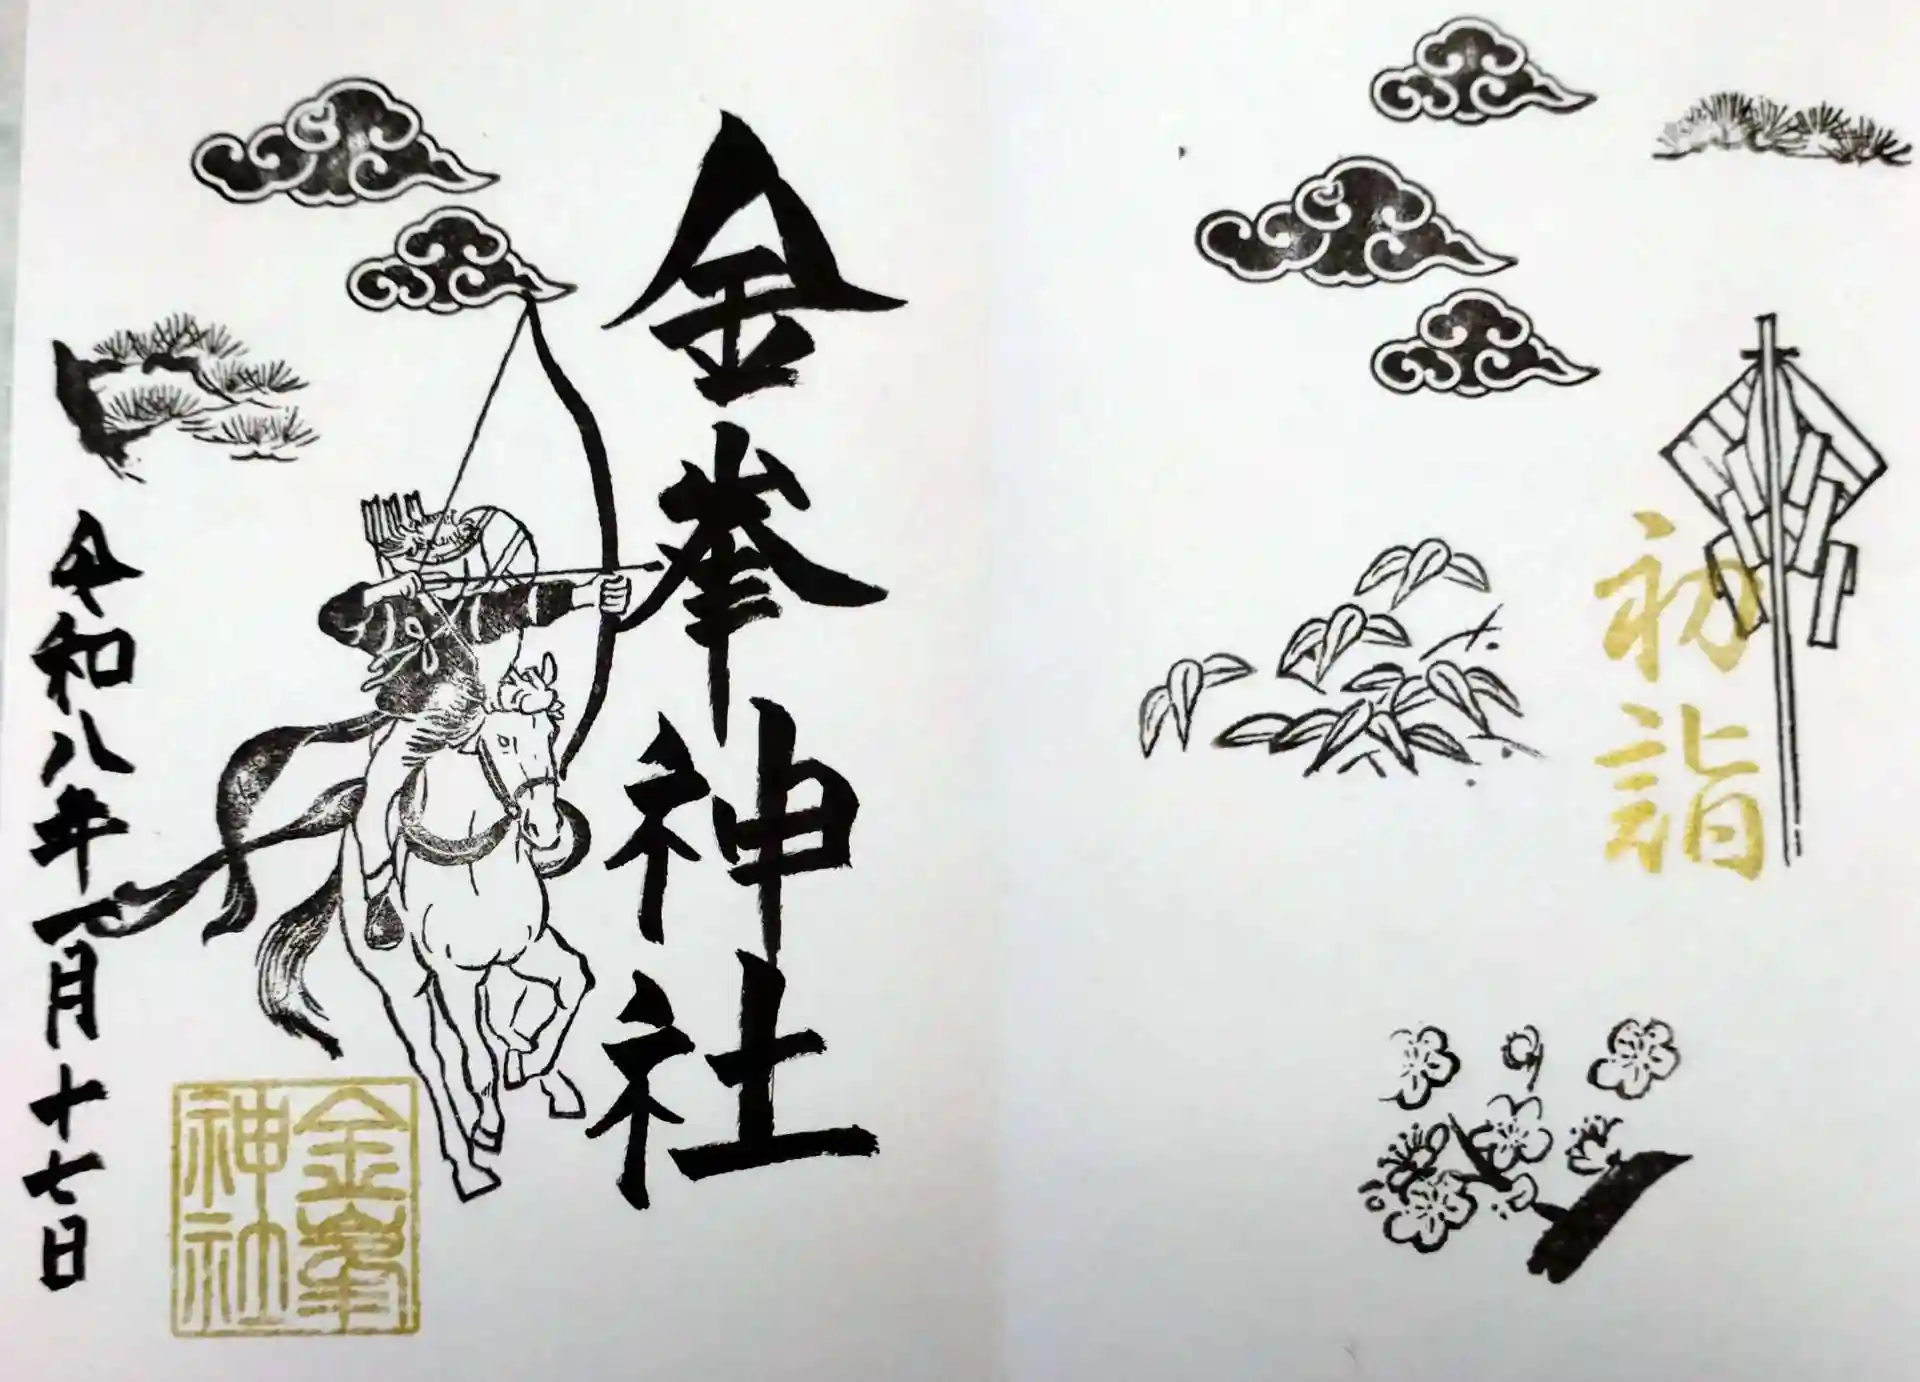 初詣
金峯神社
令和八年一月十七日
金峯
神社